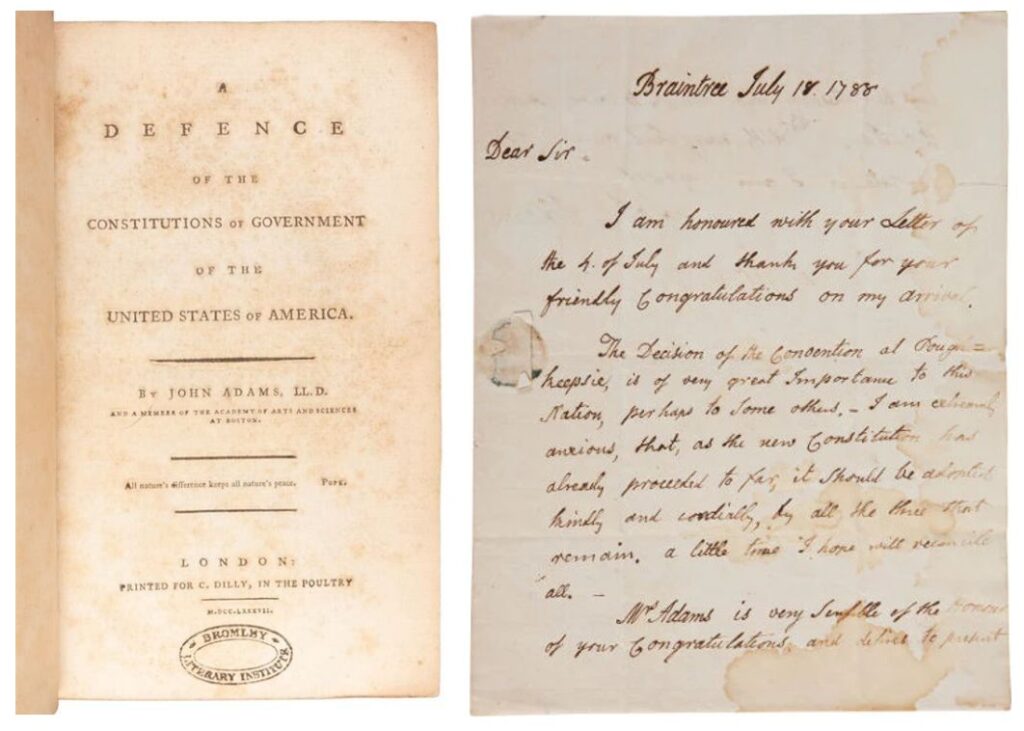 A
DEFENCE
OF THE
CONSTITUTIONS OF GOVERNMENT
OF THE
UNITED STATES OF AMERICA.
BY JOHN ADAMS, LL.D.
AND A MEMBER OF THE ACADEMY OF ARTS AND SCIENCES
AT BOSTON.
All nature's difference keeps all nature's peace. POPE.
LONDON:
PRINTED FOR C. DILLY, IN THE POULTRY
M.DCC.LXXXVII.
BROMLEY
LITERARY INSTITUTE
Braintree July 18. 1788
Dear Sir.
I am honoured with your Letter of
the 4. of July and thank you for your
friendly Congratulations on my arrival.
The Decision of the Convention at Pough=
keepsie, is of very great Importance to this
Nation, perhaps to Some others. – I am extremely
anxious, that, as the new Constitution has
already proceeded So far, it Should be adopted
kindly and cordially, by all the three that
remain. a little time I hope will reconcile
all. –
Mrs Adams is very Sensible of the Honour
of your Congratulations, and desires to present